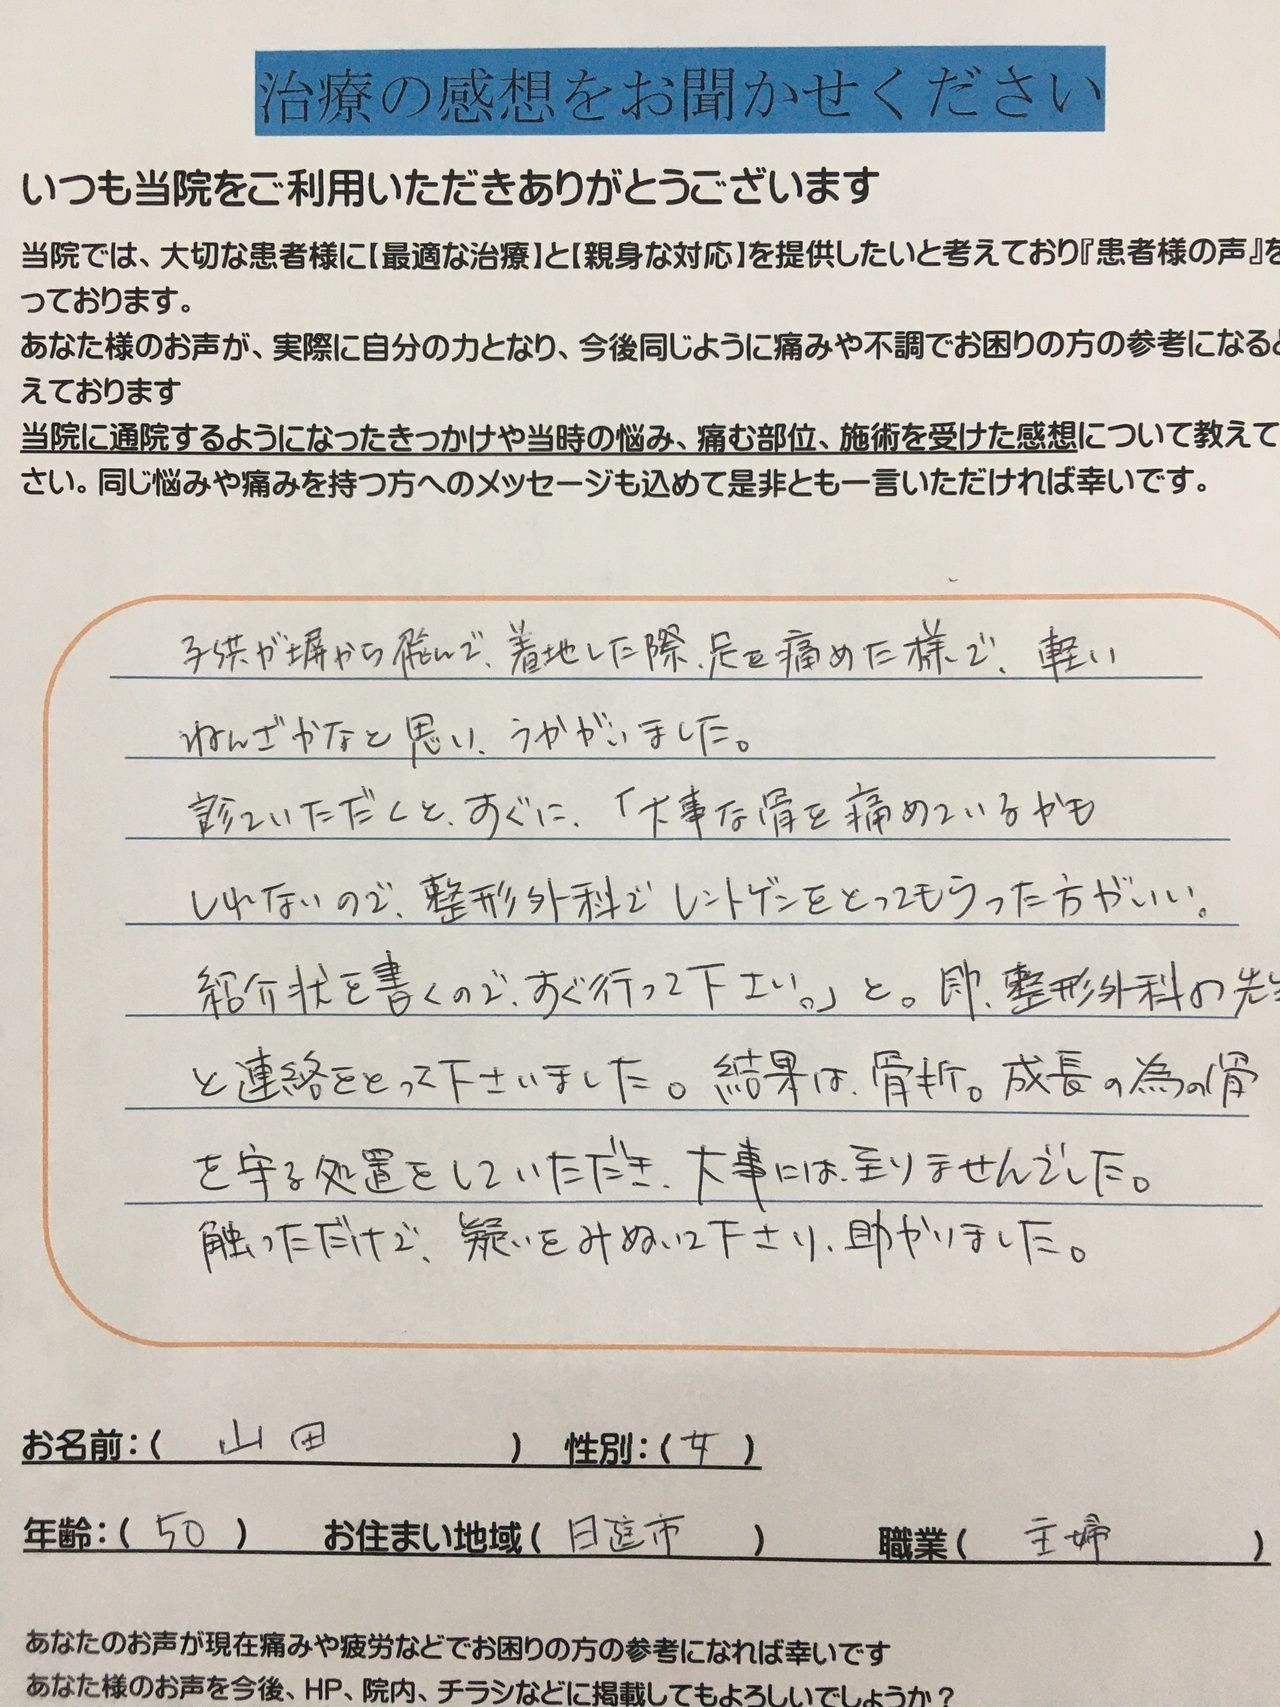 治療の感想をお聞かせください
いつも当院をご利用いただきありがとうございます
当院では、大切な患者様に【最適な治療】と【親身な対応】を提供したいと考えており『患者様の声』を
っております。
あなた様のお声が、実際に自分の力となり、今後同じように痛みや不調でお困りの方の参考になると
えております
当院に通院するようになったきっかけや当時の悩み、痛む部位、施術を受けた感想について教えて
さい。同じ悩みや痛みを持つ方へのメッセージも込めて是非とも一言いただければ幸いです。
子供が塀から飛んで、着地した際、足を痛めた様で、軽い
ねんざかなと思い、うかがいました。
診ていただくと、すぐに、「大事な骨を痛めているかも
しれないので、整形外科でレントゲンをとってもらった方がいい。
紹介状を書くので、すぐ行って下さい。」と。即、整形外科の先生
と連絡をとって下さいました。結果は、骨折。成長の為の骨
を守る処置をしていただき、大事には、至りませんでした。
触っただけで、疑いをみぬいて下さり、助かりました。
お名前:( 山田 ) 性別:(女)
年齢:( 50 ) お住まい地域( 市 ) 職業( 主婦 )
あなたのお声が現在痛みや疲労などでお困りの方の参考になれば幸いです
あなた様のお声を今後、HP、院内、チラシなどに掲載してもよろしいでしょうか?